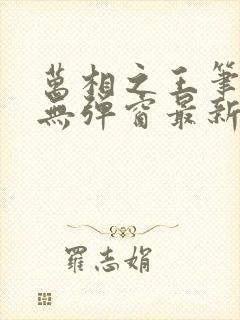 萬相之王筆
無彈窗最新
羅志娟